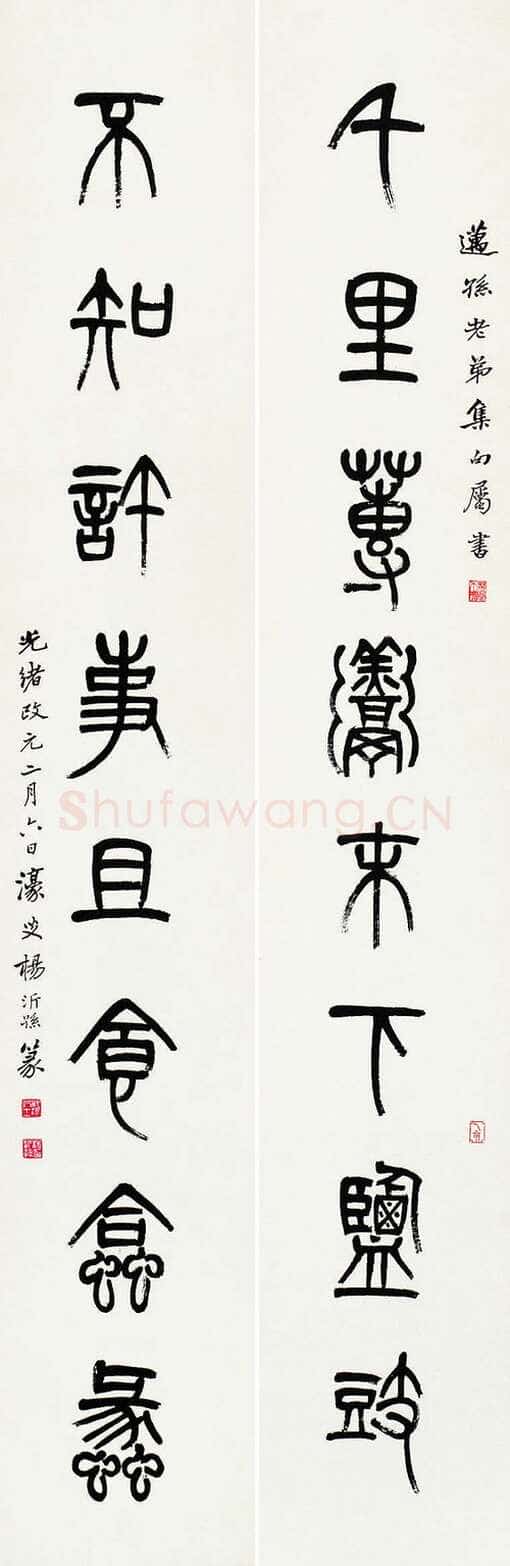 邁孫老弟集句屬書
千里蓴羹末下鹽豉
不知許事且食蛤蠡
光緒改元二月六日濠叟楊沂孫篆
Shufawang.CN